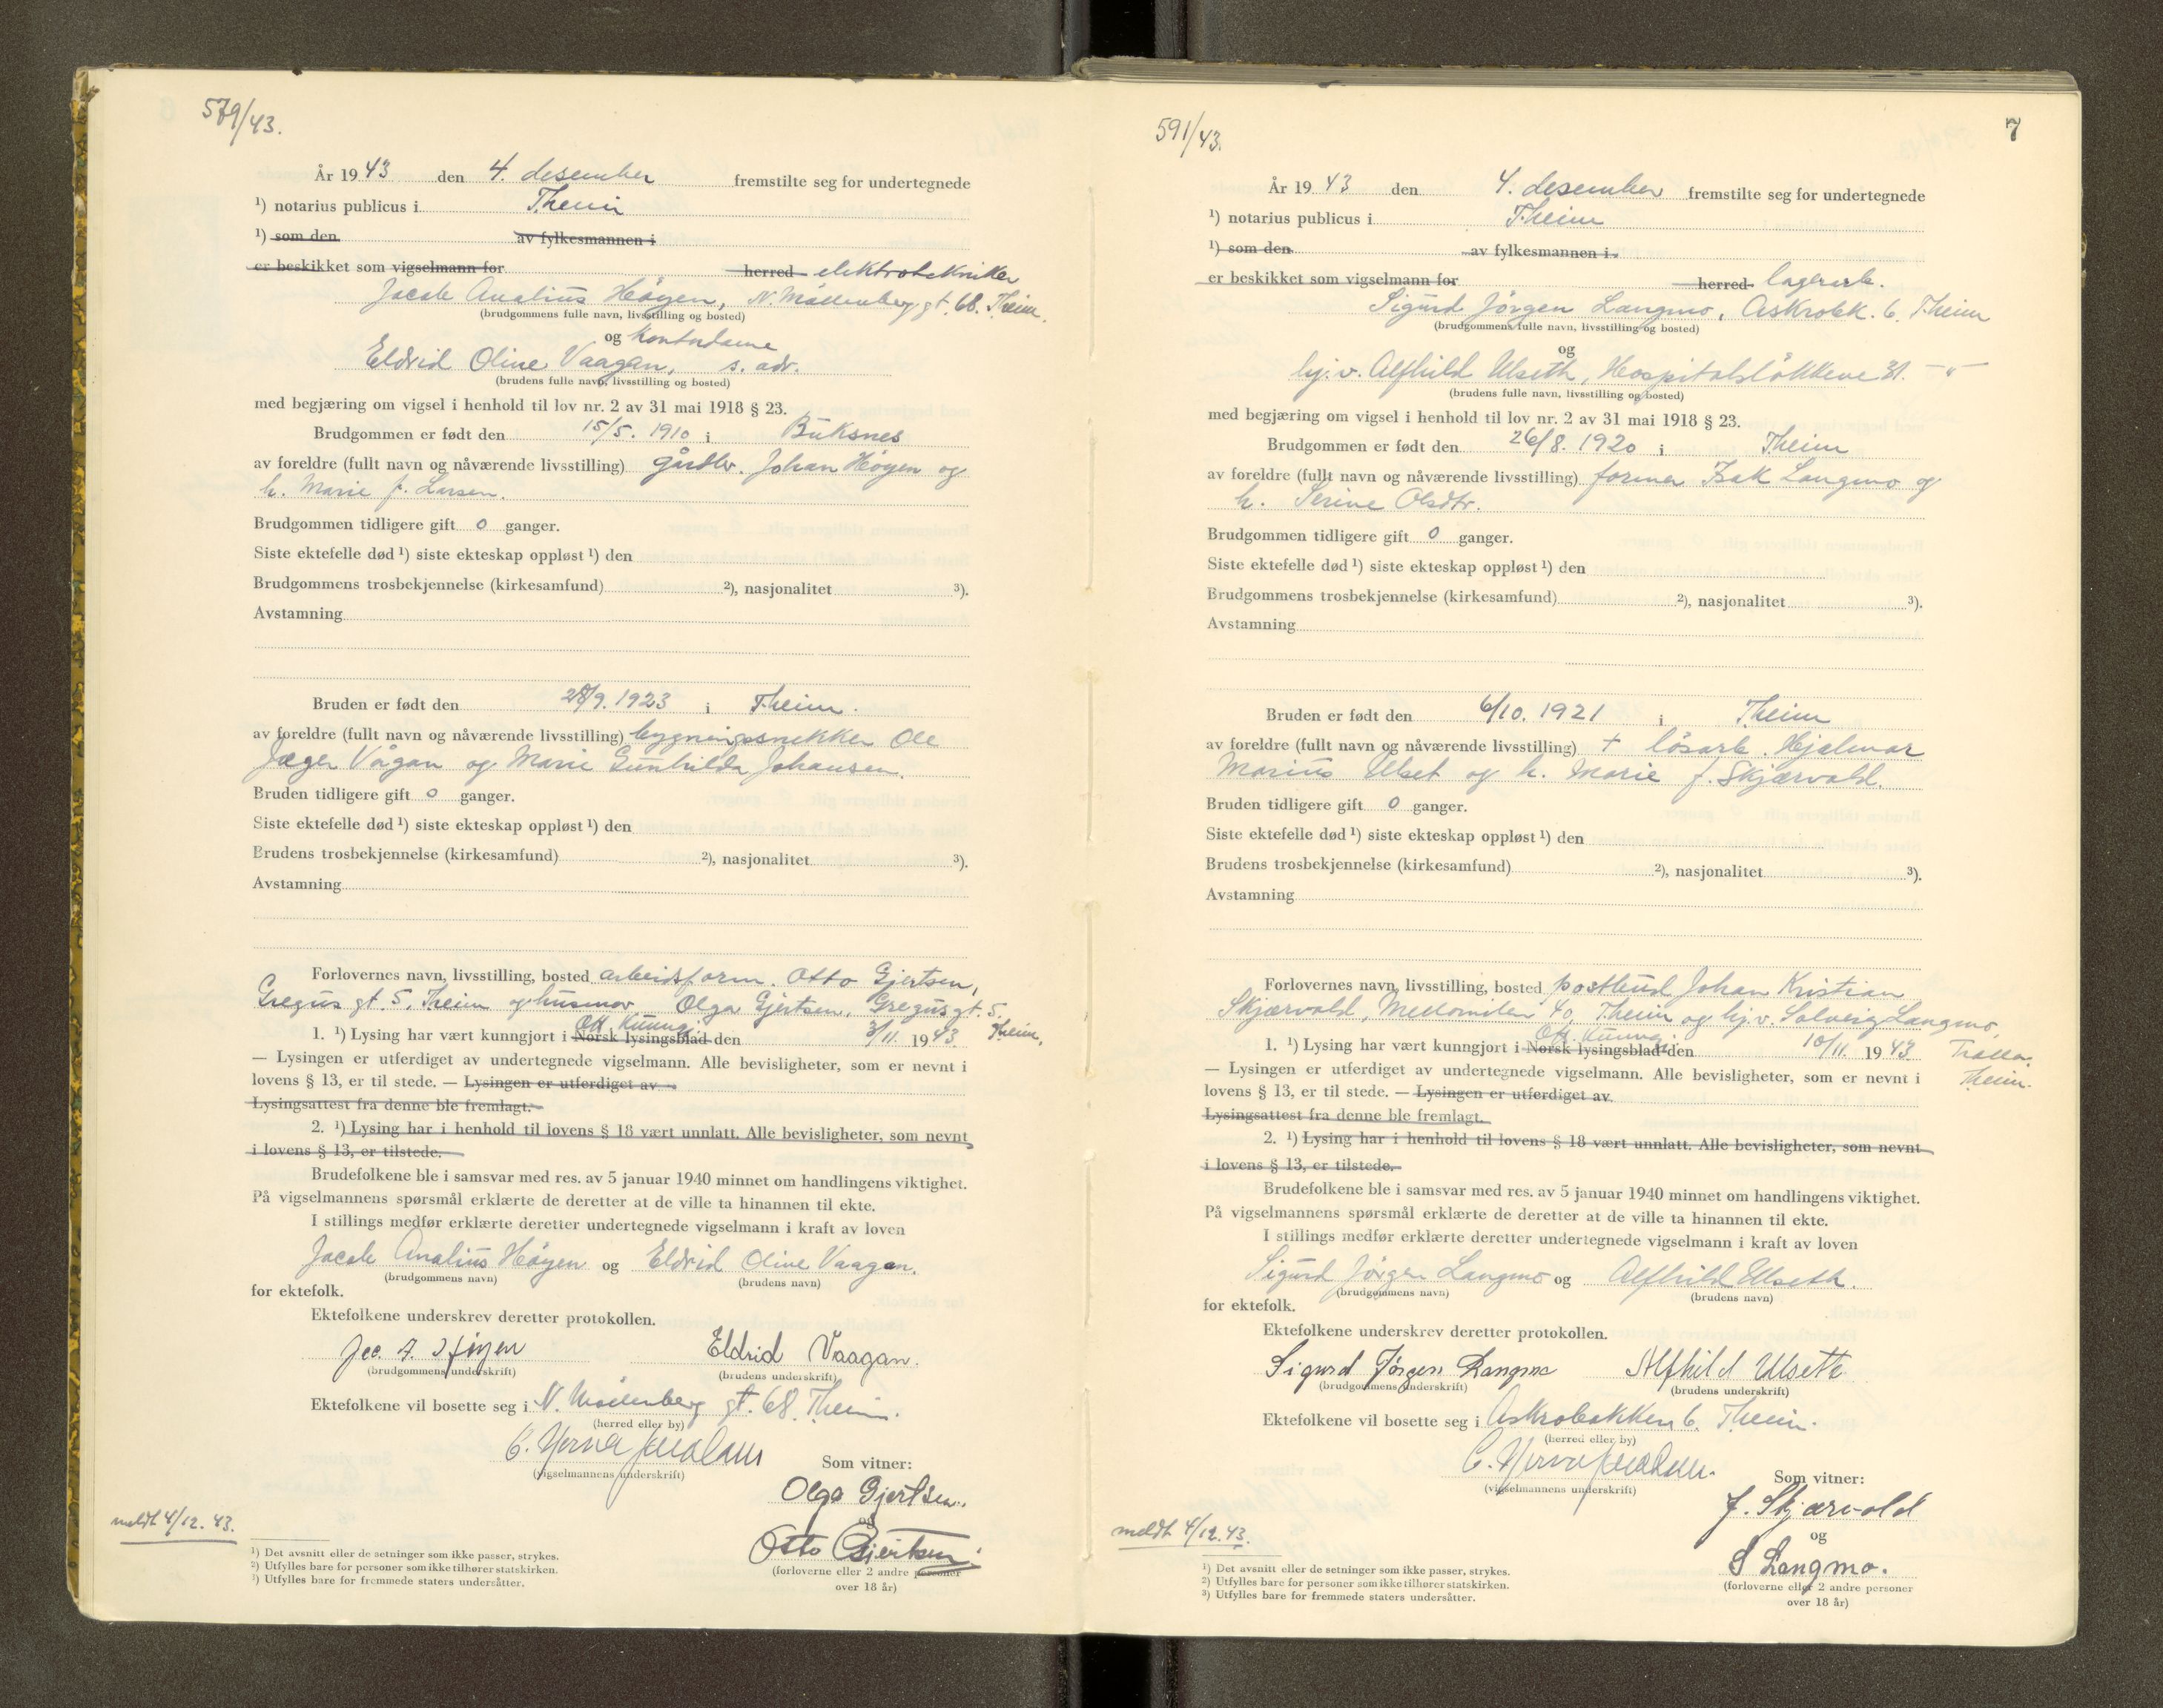 579/43.
År 1943 den 4. desember fremstilte seg for undertegnede
¹) notarius publicus i Theim
¹) som den av fylkesmannen i
er beskikket som vigselmann for herred elektrotekniker
Jacob Analius Høyen, N. Møllenberg gt. 68. Theim.
(brudgommens fulle navn, livsstilling og bosted)
og kontordame
Eldrid Oline Vaagan, s. adr.
(brudens fulle navn, livsstilling og bosted)
med begjæring om vigsel i henhold til lov nr. 2 av 31 mai 1918 § 23.
Brudgommen er født den 15/5. 1910 i Buksnes
av foreldre (fullt navn og nåværende livsstilling) gårdbr. Johan Høyen og
h. Marie f. Larsen.
Brudgommen tidligere gift 0 ganger.
Siste ektefelle død ¹) siste ekteskap oppløst ¹) den
Brudgommens trosbekjennelse (kirkesamfund) ²), nasjonalitet ³).
Avstamning
Bruden er født den /9. 1923 i Theim.
av foreldre (fullt navn og nåværende livsstilling) bygningssnekker Ole
Jæger Vågan og Marie Gunhilda Johansen.
Bruden tidligere gift 0 ganger.
Siste ektefelle død ¹) siste ekteskap oppløst ¹) den
Brudens trosbekjennelse (kirkesamfund) ²), nasjonalitet ³).
Avstamning
Forlovernes navn, livsstilling, bosted arbeidsform. Otto Gjertsen,
Gregus gt. 5. Theim og husmor Olga Gjertsen, Gregus gt. 5.
Theim.
Off. Kunng.
1. ¹) Lysing har vært kunngjort i Norsk lysingsblad den 3/11. 1943.
— Lysingen er utferdiget av undertegnede vigselmann. Alle bevisligheter, som er nevnt i
lovens § 13, er til stede. — Lysingen er utferdiget av
Lysingsattest fra denne ble fremlagt.
2. ¹) Lysing har i henhold til lovens § 18 vært unnlatt. Alle bevisligheter, som nevnt
i lovens § 13, er tilstede.
Brudefolkene ble i samsvar med res. av 5 januar 1940 minnet om handlingens viktighet.
På vigselmannens spørsmål erklærte de deretter at de ville ta hinannen til ekte.
I stillings medfør erklærte deretter undertegnede vigselmann i kraft av loven
Jacob Analius Høyen og Eldrid Oline Vaagan.
(brudgommens navn) (brudens navn)
for ektefolk.
Ektefolkene underskrev deretter protokollen.
Jac. A. Høyen Eldrid Vaagan.
(brudgommens underskrift) (brudens underskrift)
Ektefolkene vil bosette seg i N. Møllenberg gt. 68. Theim.
(herred eller by)
(vigselmannens underskrift)
Som vitner:
Olga Gjertsen.
og
Otto Gjertsen.
(forloverne eller 2 andre personer
over 18 år)
meldt 4/12. 43.
¹) Det avsnitt eller de setninger som ikke passer, strykes.
²) Utfylles bare for personer som ikke tilhører statskirken.
³) Utfylles bare for fremmede staters undersåtter.
591/43.
7
År 1943 den 4. desember fremstilte seg for undertegnede
¹) notarius publicus i Theim
¹) som den av fylkesmannen i
er beskikket som vigselmann for herred lagerarb.
Sigurd Jørgen Langmo, Askrobk. 6. Theim
(brudgommens fulle navn, livsstilling og bosted)
og
hj. v. Alfhild Ulseth, Hospitalsløkkene 31. — " —
(brudens fulle navn, livsstilling og bosted)
med begjæring om vigsel i henhold til lov nr. 2 av 31 mai 1918 § 23.
Brudgommen er født den 26/8. 1920 i Theim
av foreldre (fullt navn og nåværende livsstilling) former Isak Langmo og
h. Serine Olsdtr.
Brudgommen tidligere gift 0 ganger.
Siste ektefelle død ¹) siste ekteskap oppløst ¹) den
Brudgommens trosbekjennelse (kirkesamfund) ²), nasjonalitet ³).
Avstamning
Bruden er født den 6/10. 1921 i Theim
av foreldre (fullt navn og nåværende livsstilling) + løsarb. Hjalmar
Marius Ulset og h. Marie f. Skjærvold.
Bruden tidligere gift 0 ganger.
Siste ektefelle død ¹) siste ekteskap oppløst ¹) den
Brudens trosbekjennelse (kirkesamfund) ²), nasjonalitet ³).
Avstamning
Forlovernes navn, livsstilling, bosted postbud Johan Kristian
Skjærvold, Mellomilen 40, Theim og hj. v. Solveig Langmo,
Theim.
Off. Kunng.
1. ¹) Lysing har vært kunngjort i Norsk lysingsblad den 10/11. 1943
— Lysingen er utferdiget av undertegnede vigselmann. Alle bevisligheter, som er nevnt i
lovens § 13, er til stede. — Lysingen er utferdiget av
Lysingsattest fra denne ble fremlagt.
2. ¹) Lysing har i henhold til lovens § 18 vært unnlatt. Alle bevisligheter, som nevnt
i lovens § 13, er tilstede.
Brudefolkene ble i samsvar med res. av 5 januar 1940 minnet om handlingens viktighet.
På vigselmannens spørsmål erklærte de deretter at de ville ta hinannen til ekte.
I stillings medfør erklærte deretter undertegnede vigselmann i kraft av loven
Sigurd Jørgen Langmo og Alfhild Ulseth.
(brudgommens navn) (brudens navn)
for ektefolk.
Ektefolkene underskrev deretter protokollen.
Sigurd Jørgen Langmo Alfhild Ulseth
(brudgommens underskrift) (brudens underskrift)
Ektefolkene vil bosette seg i Askrobakken 6. Theim.
(herred eller by)
(vigselmannens underskrift)
Som vitner:
J. Skjærvold
og
S Langmo.
(forloverne eller 2 andre personer
over 18 år)
meldt 4/12. 43.
¹) Det avsnitt eller de setninger som ikke passer, strykes.
²) Utfylles bare for personer som ikke tilhører statskirken.
³) Utfylles bare for fremmede staters undersåtter.